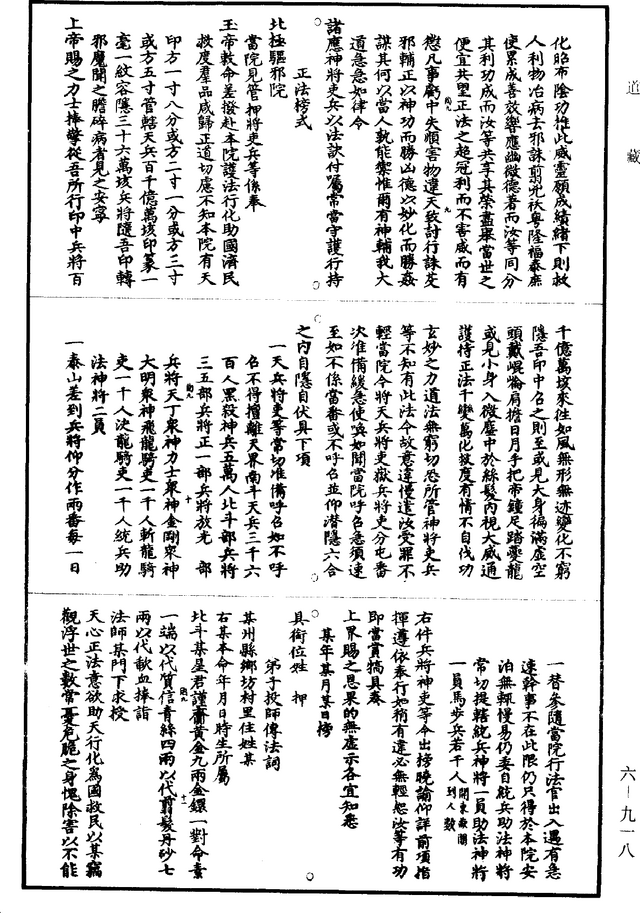 道藏
化昭布陰功推此威靈願成績緒下則救
人利物治病去邪誅翦兇袄粤隆福泰庶
使累成善效響應幽微德著而汝等同分
其利功成而汝等共享其榮盡舉當世之
便宜共望正法之超冠利而不害威而有
懲凡事虧中失順害物違天致討行誅芟
邪輔正以神功而勝凶德以妙化而勝姦
謀其何以當人孰能禦惟爾有神輔我大
道急急如律令
諸應神將吏兵以法訣付屬常當守護行持
正法榜式
北極驅邪院
當院見管押將吏兵等係奉
玉帝敕命差撥赴本院護法行化助國濟民
救度羣品咸歸正道切慮不知本院有天
印方一寸八分或方二寸一分或方三寸
或方五寸管轄天兵百千億萬垓印篆一
毫一紋容隱三十六萬垓兵將隨吾印轉
邪魔聞之膽碎病者見之安寧
上帝賜之力士捧擎從吾所行印中兵將百
千億萬垓來往如風無形無迹變化不窮
隱吾印中召之則至或見大身徧滿虛空
頭戴崐崘肩擔日月手把帝鐘足踏夔龍
或見小身入微塵中於絲髮內視大威通
護持正法千變萬化救度有情不自伐功
玄妙之力道法無窮切恐所管神將吏兵
等不知有此法令故意違慢遣汝受罪不
輕當院今將天兵將吏嶽兵將吏分屯番
次准備緩急使喚如聞當院呼召急須速
至如不係當番或不呼召並仰潛隱六合
之内自隱自伏具下項
一天兵將吏等當切准備呼召如不呼
召不得擅離天界南斗天兵三千六
百人黑殺神兵五萬人北斗部兵將
三五部兵將正一部兵將放光　部
兵將天丁衆神力士衆神金剛衆神
大明衆神飛龍騎吏一千人斬龍騎
吏一千人決龍騎吏一千人統兵助
法神將二員
一泰山差到兵將仰分作兩番每一日
一替參隨當院行法官出入遇有急
速幹事不在此限仍只得於本院安
泊無輒慢易仍委自統兵助法神將
常切提轄統兵神將一員助法神將
一員馬步兵若干人開東嶽關到人數
右件兵將神吏等今出榜曉諭仰詳前項指
揮遵依奉行如稍有違必無輕恕汝等有功
即當賞犒具奏
上界賜之恩果的無虛示各宜知悉
某年某月某日榜
具銜位姓　押
弟子投師傳法詞
某州縣鄉坊村里住姓某
右某本命年月日時生所屬
北斗某星君謹齎黃金九兩金鐶一對命素
一端以代質信青絲四兩以代翦髮丹砂七
兩以代歃血捧詣
法師某門下求授
天心正法意欲助天行化爲國救民以某竊
觀浮世之數常憂危脆之身愧除害以不能
六－九一八